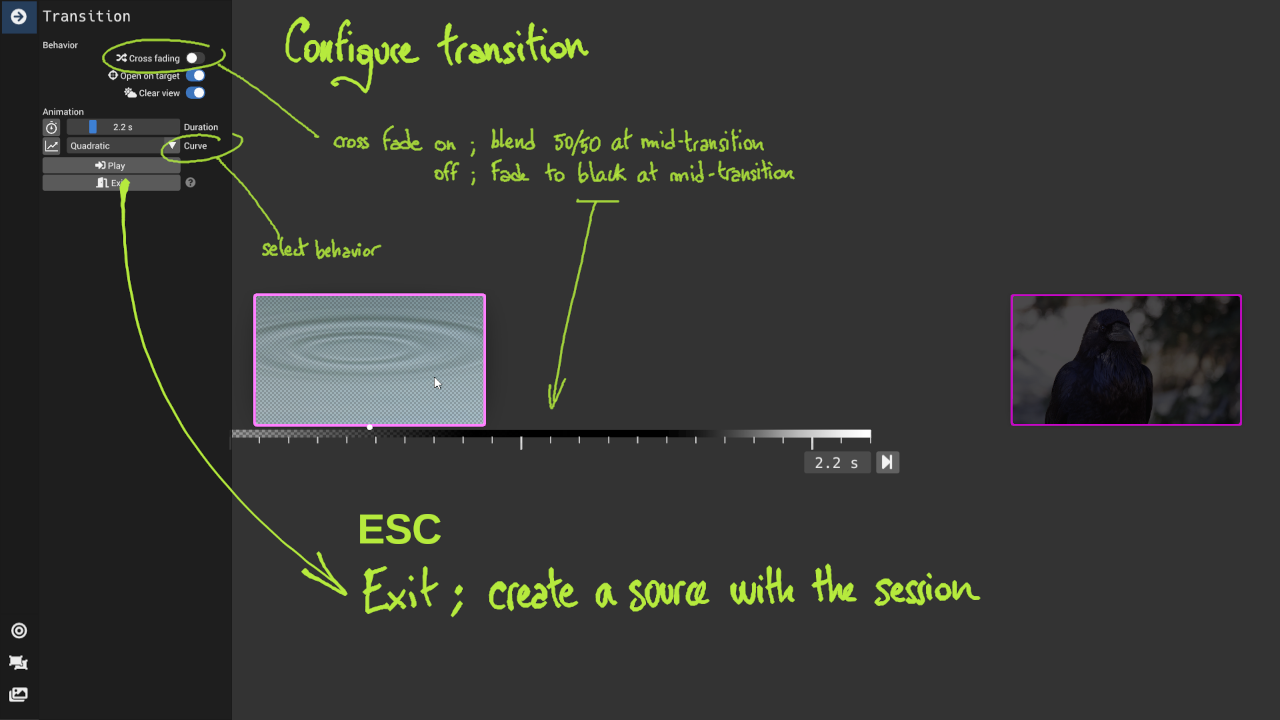 Transition
Configure transition
Behavior
Cross fading
Open on target
Clear view
Animation
2.2 s Duration
Quadratic Curve
Play
Exit
cross fade on ; blend 50/50 at mid-transition
off ; Fade to black at mid-transition
select behavior
2.2 s
ESC
Exit ; create a source with the session